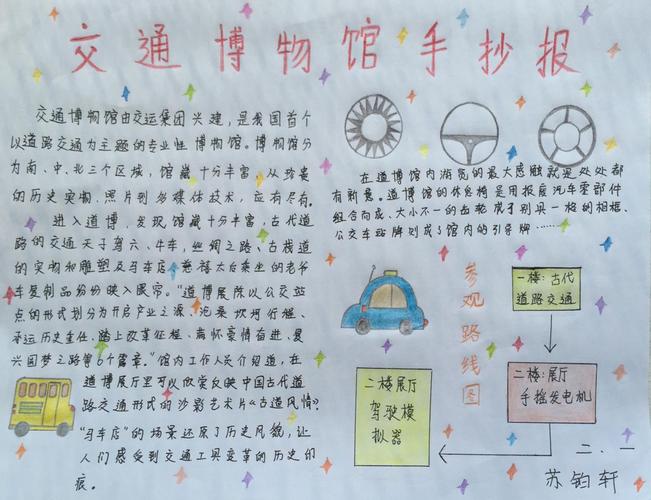 交通博物馆手抄报
交通博物馆由交运集团兴建,是我国首个
以道路交通为主题的专业性博物馆。博物馆分
为南、中、北三个区域,馆藏十分丰富,从珍贵
的历史实物、照片到多媒体技术,应有尽有。
进入道博,发现馆藏十分丰富,古代道
路的交通天子驾六、牛车,丝绸之路、古栈道
的实物和雕塑及马车店、慈禧太后乘坐的老爷
车复制品纷纷映入眼帘。"道博展陈以公交站
点的形式划分为开启产业之源、沧桑坎坷行程、
承运历史重任、踏上改革征程、满怀豪情奋进、复
兴圆梦之路等6个篇章。"馆内工作人员介绍道,在
道博展厅里可以欣赏反映中国古代道
路交通形式的沙影艺术片《古道风情》?
"马车店"的场景还原了历史风貌,让
人们感受到交通工具变革的历史的
痕。
在道博馆内游览的最大感触就是处处都
有新意。道博馆的休息椅是用报废汽车零部件
组合而成,大小不一的齿轮成了别具一格的相框、
公交车站牌则成了馆内的引导牌……
参观路线图
一楼:古代
道路交通
二楼:展厅
手摇发电机
二楼展厅
驾驶模
拟器
二.一
苏钧轩